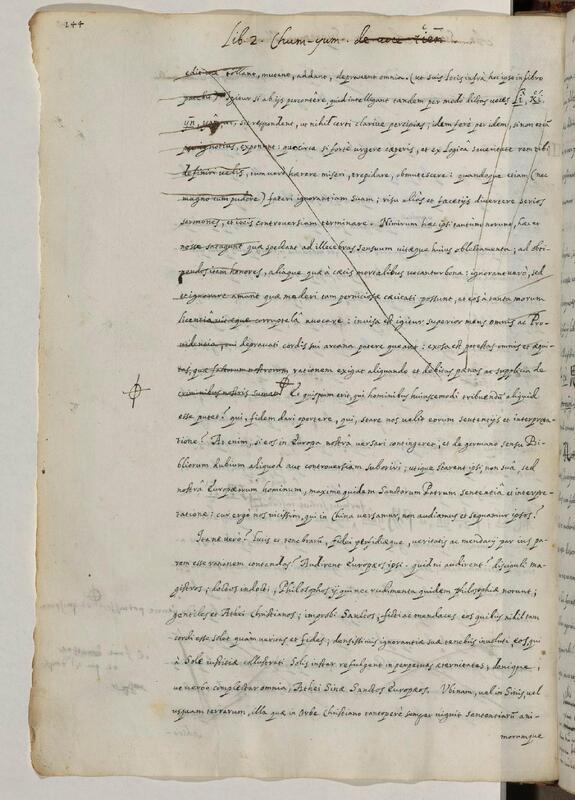 244
Lib. 2. Chum-yum. de voce tien
edicina tollant, mutent, addant, depravent omnia. (ut suis locis infra hoc ipso in libro
patebit) Igitur si ab ijs percontere, quid intelligant tandem per modo dictas voces Li, Ki,
respondent, ut nihil certi clarive percipias; idem fere per idem, si non etiam
ignotius, exponunt: quocirca si forte urgere caeperis, et ex Logica severitate rem tibi
definiri velis, tum vero haerere miseri, trepidare, obmutescere: quandoque etiam (nec
magno cum pudore) fateri ignorantiam suam; risu alias et facetijs divertere serios
sermones, et iocis controversiam terminare. Nimirum haec ipsi tantum norunt, haec et
nosse satagunt quae spectant ad illecebras sensuum vitaeque huius oblectamenta; ad obti-
nendos item honores, aliaque quae a caecis mortalibus vocantur bona: ignorant vero, sed
et ignorare amant quae mederi tam perniciosae caecitati possunt, et eos a tanta morum
licentia vitaeque corruptela avocare: invisa est igitur superior mens omnis ac Pro-
videntia, cui depravati cordis sui arcana patere queant: exosa est potestas omnis et aequi-
tas, quae factorum nostrorum rationem exigat aliquando et debitas paenas ac supplicia de
criminibus nostris sumat. Et quispiam erit, qui hominibus huiuscemodi tribuendum aliquid
esse putet? qui fidem dari oportere, qui stare nos velit eorum sententijs et interpreta-
tione? At enim, si eos in Europa nostra versari contingeret, et de germano sensu Bi-
bliorum dubium aliquod aut controversiam suboriri; utique starent ipsi non sua, sed
nostra Europaeorum hominum, maxime quidem Sanctorum Patrum sententia et interpre-
tatione: cur ergo nos vicissim, qui in China versamur, non audiamus et sequamur ipsos?
Itane vero? lucis et tenebrarum, fidei perfidiaeque, veritatis ac mendacij par ius pa-
rem esse rationem contendas? Audirent Europaeos ipsi. quid ni audirent? discipuli ma-
gistros; doctos indocti; Philosophos ij qui nec rudimenta quidem philosophiae norunt;
gentiles et Athei Christianos; improbi Sanctos; ficti ac mendaces eos quibus nihil tam
cordi esse solet quam veritas et fides; densissimis ignorantiae suae tenebris involuti eos, qui
a Sole iustitiae collustrati Solis instar refulgent in perpetuas aeternitates; denique,
ut verbo complectar omnia, Athei Sinae Sanctos Europaeos. Ubinam, vel in Sinis, vel
uspiam terrarum, illa quae in Orbe Christiano tantopere semper viguit sententiarum ani-
morumque